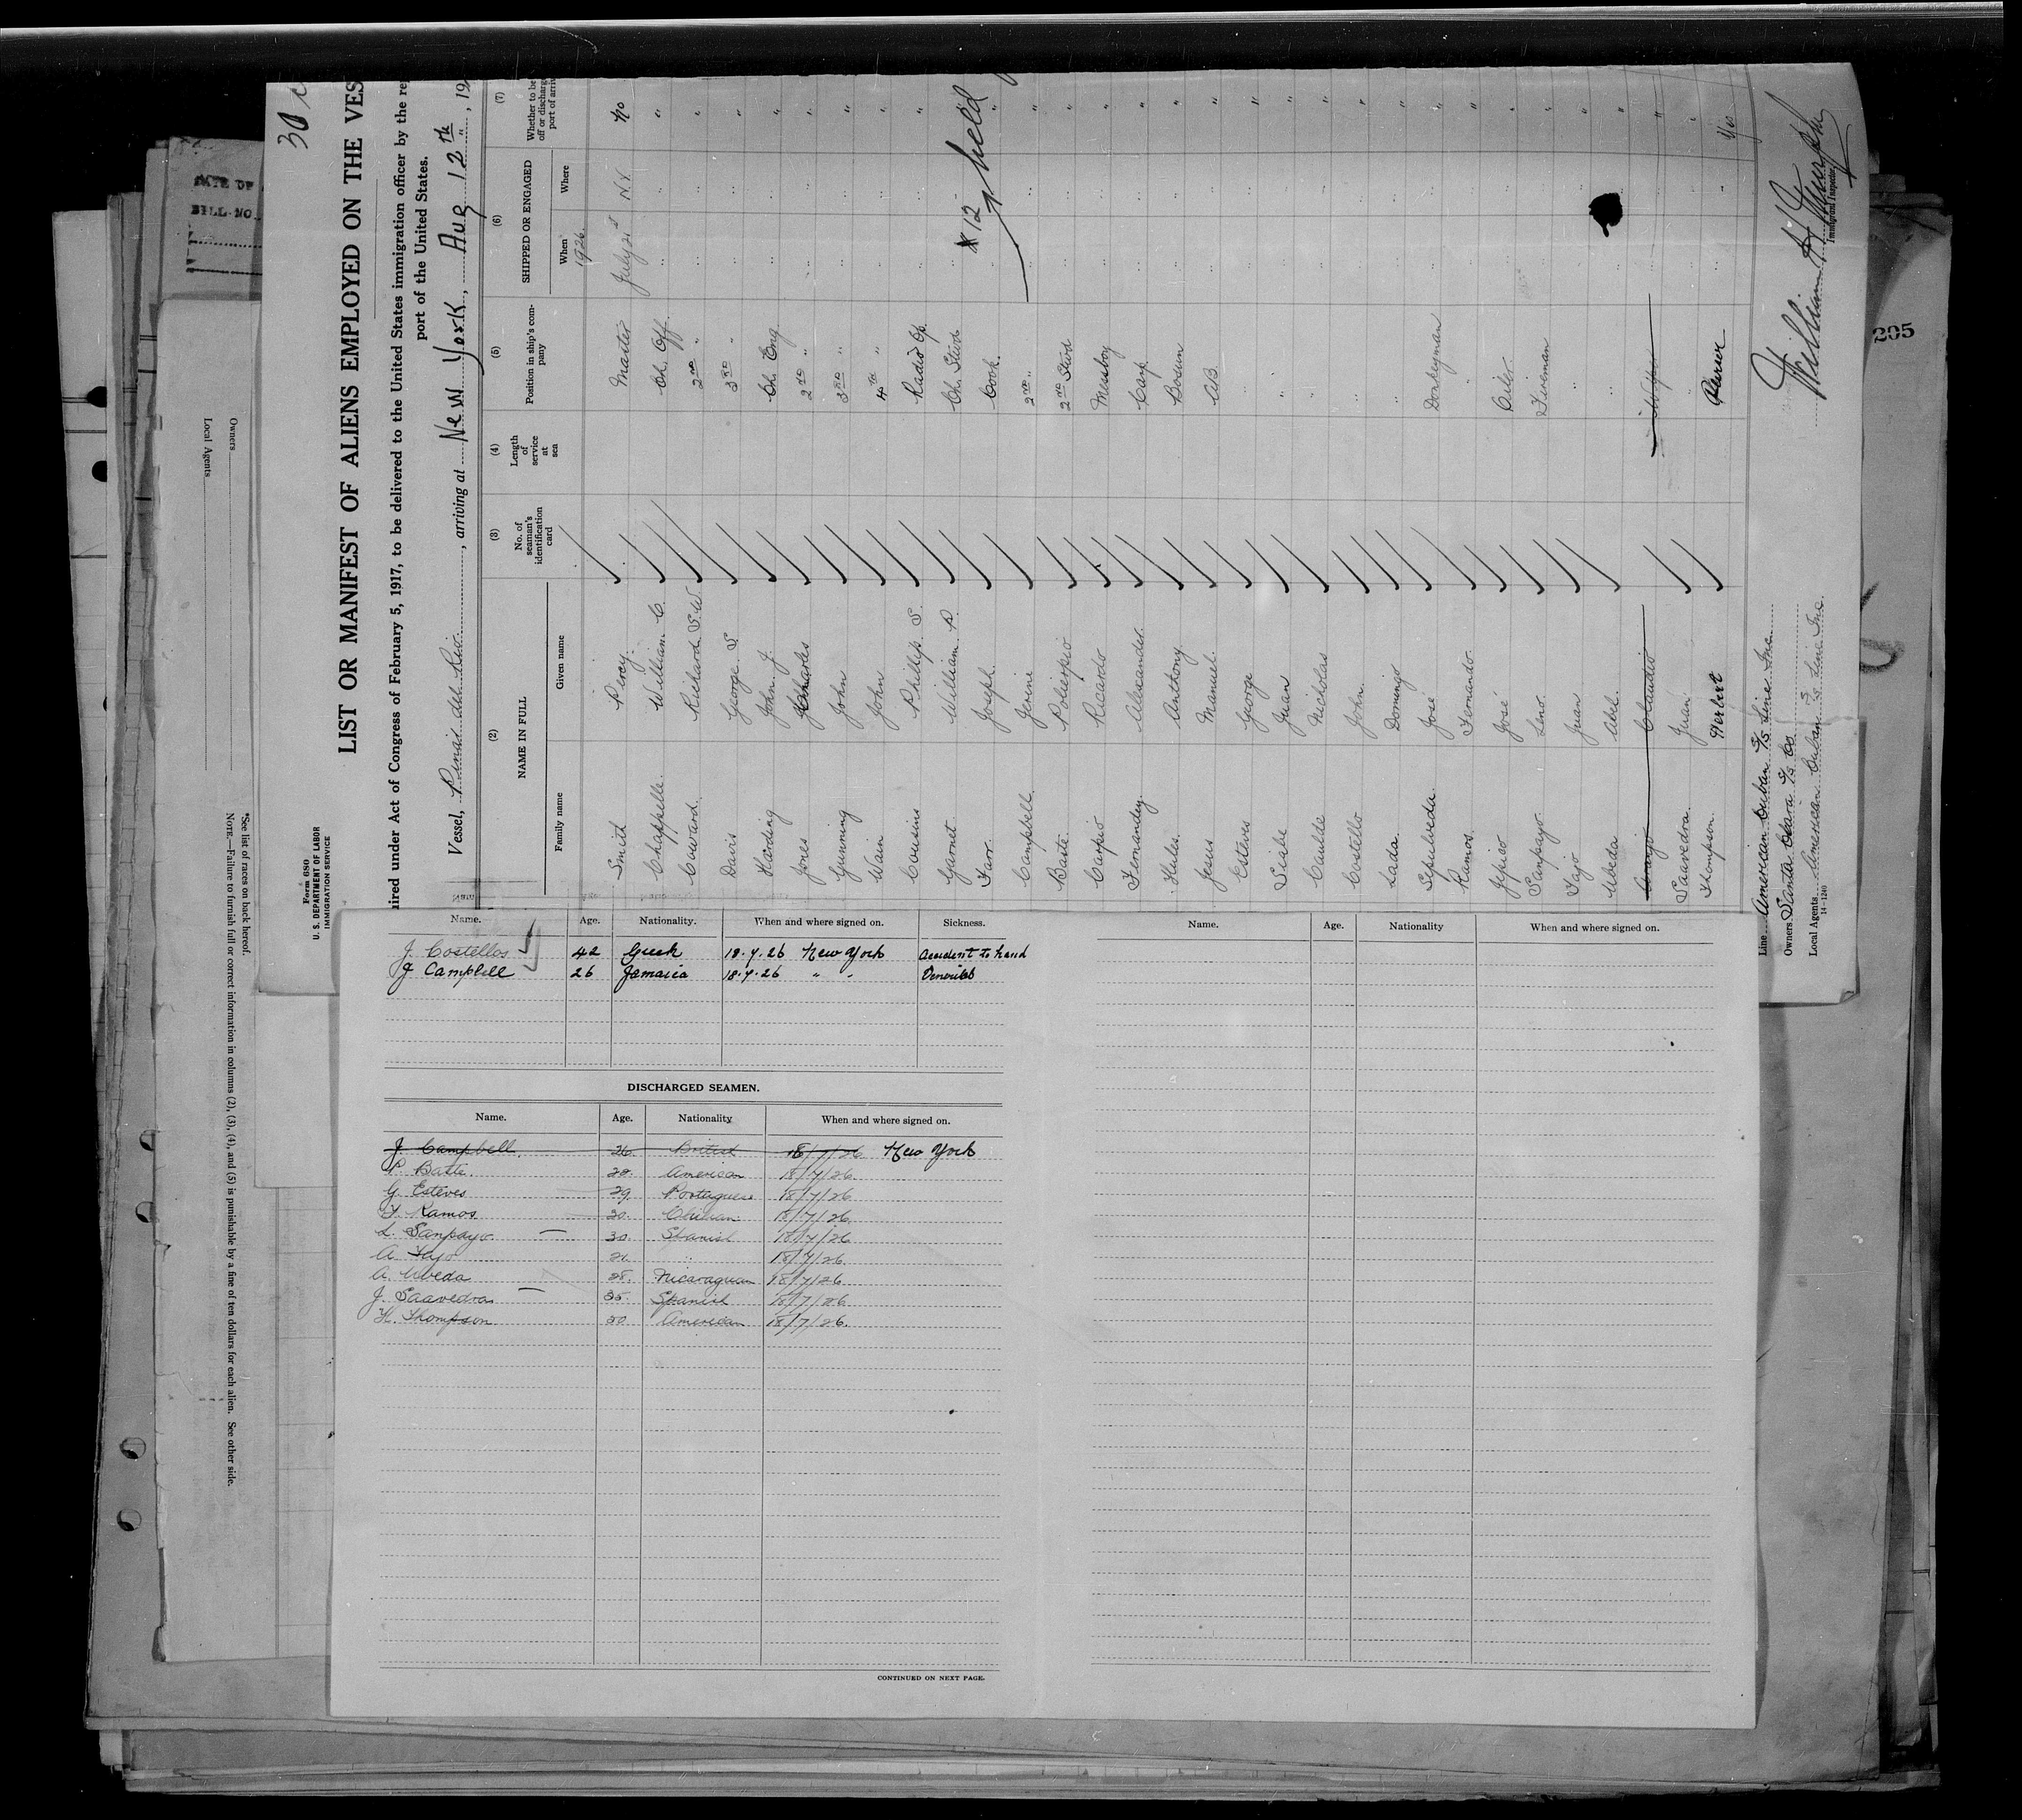 30
Form 680
U. S. DEPARTMENT OF LABOR
IMMIGRATION SERVICE
LIST OR MANIFEST OF ALIENS EMPLOYED ON THE VES
ired under Act of Congress of February 5, 1917, to be delivered to the United States immigration officer by the re
port of the United States.
Vessel, Pinar del Rio, arriving at New York, Aug 12th, 19
(2) (3) (4) (5) (6) (7)
NAME IN FULL No. of seaman's identification card Length of service at sea Position in ship's company SHIPPED OR ENGAGED Whether to be off or discharge port of arriv
Family name Given name When Where
1926
Smith Percy Master July 21st N.Y. No
Chappelle William C. Ch. Off. " " "
Coward Richard S.W. 2nd " " " "
Davis George S. 3rd " " " "
Harding John J. Ch. Eng " " "
Jones Charles 2nd " " " "
Gunning John 3rd " " " "
Wain John 4th " " " "
Cousins Phillip S. Radio Op. " " "
Garnet William P. Ch. Stwd " " "
Farr Joseph Cook " " "
Campbell 2nd " " " "
Baste 2nd Stwd " " "
Carpio Ricardo Messboy " " "
Fernandez Alexander Carp " " "
Hules Anthony Bosun " " "
Jesus Manuel AB " " "
Esteves George " " " "
Juan " " " "
Caulde Nicholas " " " "
Costello John " " " "
Lada Domingo " " " "
Sepulveda José Donkeyman " " "
Ramos Fernando " " " "
José Oiler " " "
Sanpayo Lino Fireman " " "
Tajo Juan " " " "
Ubeda Abel " " " "
Claudio Wiper
Saavedra Juan " " " "
Thompson Herbert " " Yes
#12 held
Line American Cuban S/S Line Inc.
Owners Santa Clara S/S Co
Local Agents American Cuban S/S Line Inc.
14-1240
William H. Murphy
Immigrant Inspector.
205
Owners
Local Agents
*See list of races on back hereof.
NOTE.—Failure to furnish full or correct information in columns (2), (3), (4), and (5) is punishable by a fine of ten dollars for each alien. See other side.
Name. Age. Nationality. When and where signed on. Sickness.
J. Costellos 42 Greek 18.7.26 New York Accident to hand
J Campbell 26 Jamaica 18.7.26 " "
DISCHARGED SEAMEN.
Name. Age. Nationality When and where signed on.
J. Campbell 26 British 18/7/26 New York
P. Baste 28 American 18/7/26
G. Esteves 29 Portuguese 18/7/26
F. Ramos 30 Chilian 18/7/26
L. Sanpayo 30 Spanish 18/7/26
A. Tajo 21 " 18/7/26
A. Ubeda 28 Nicaraguan 18/7/26
J. Saavedra 35 Spanish 18/7/26
H. Thompson 20 American 18/7/26
CONTINUED ON NEXT PAGE.
Name. Age. Nationality When and where signed on.